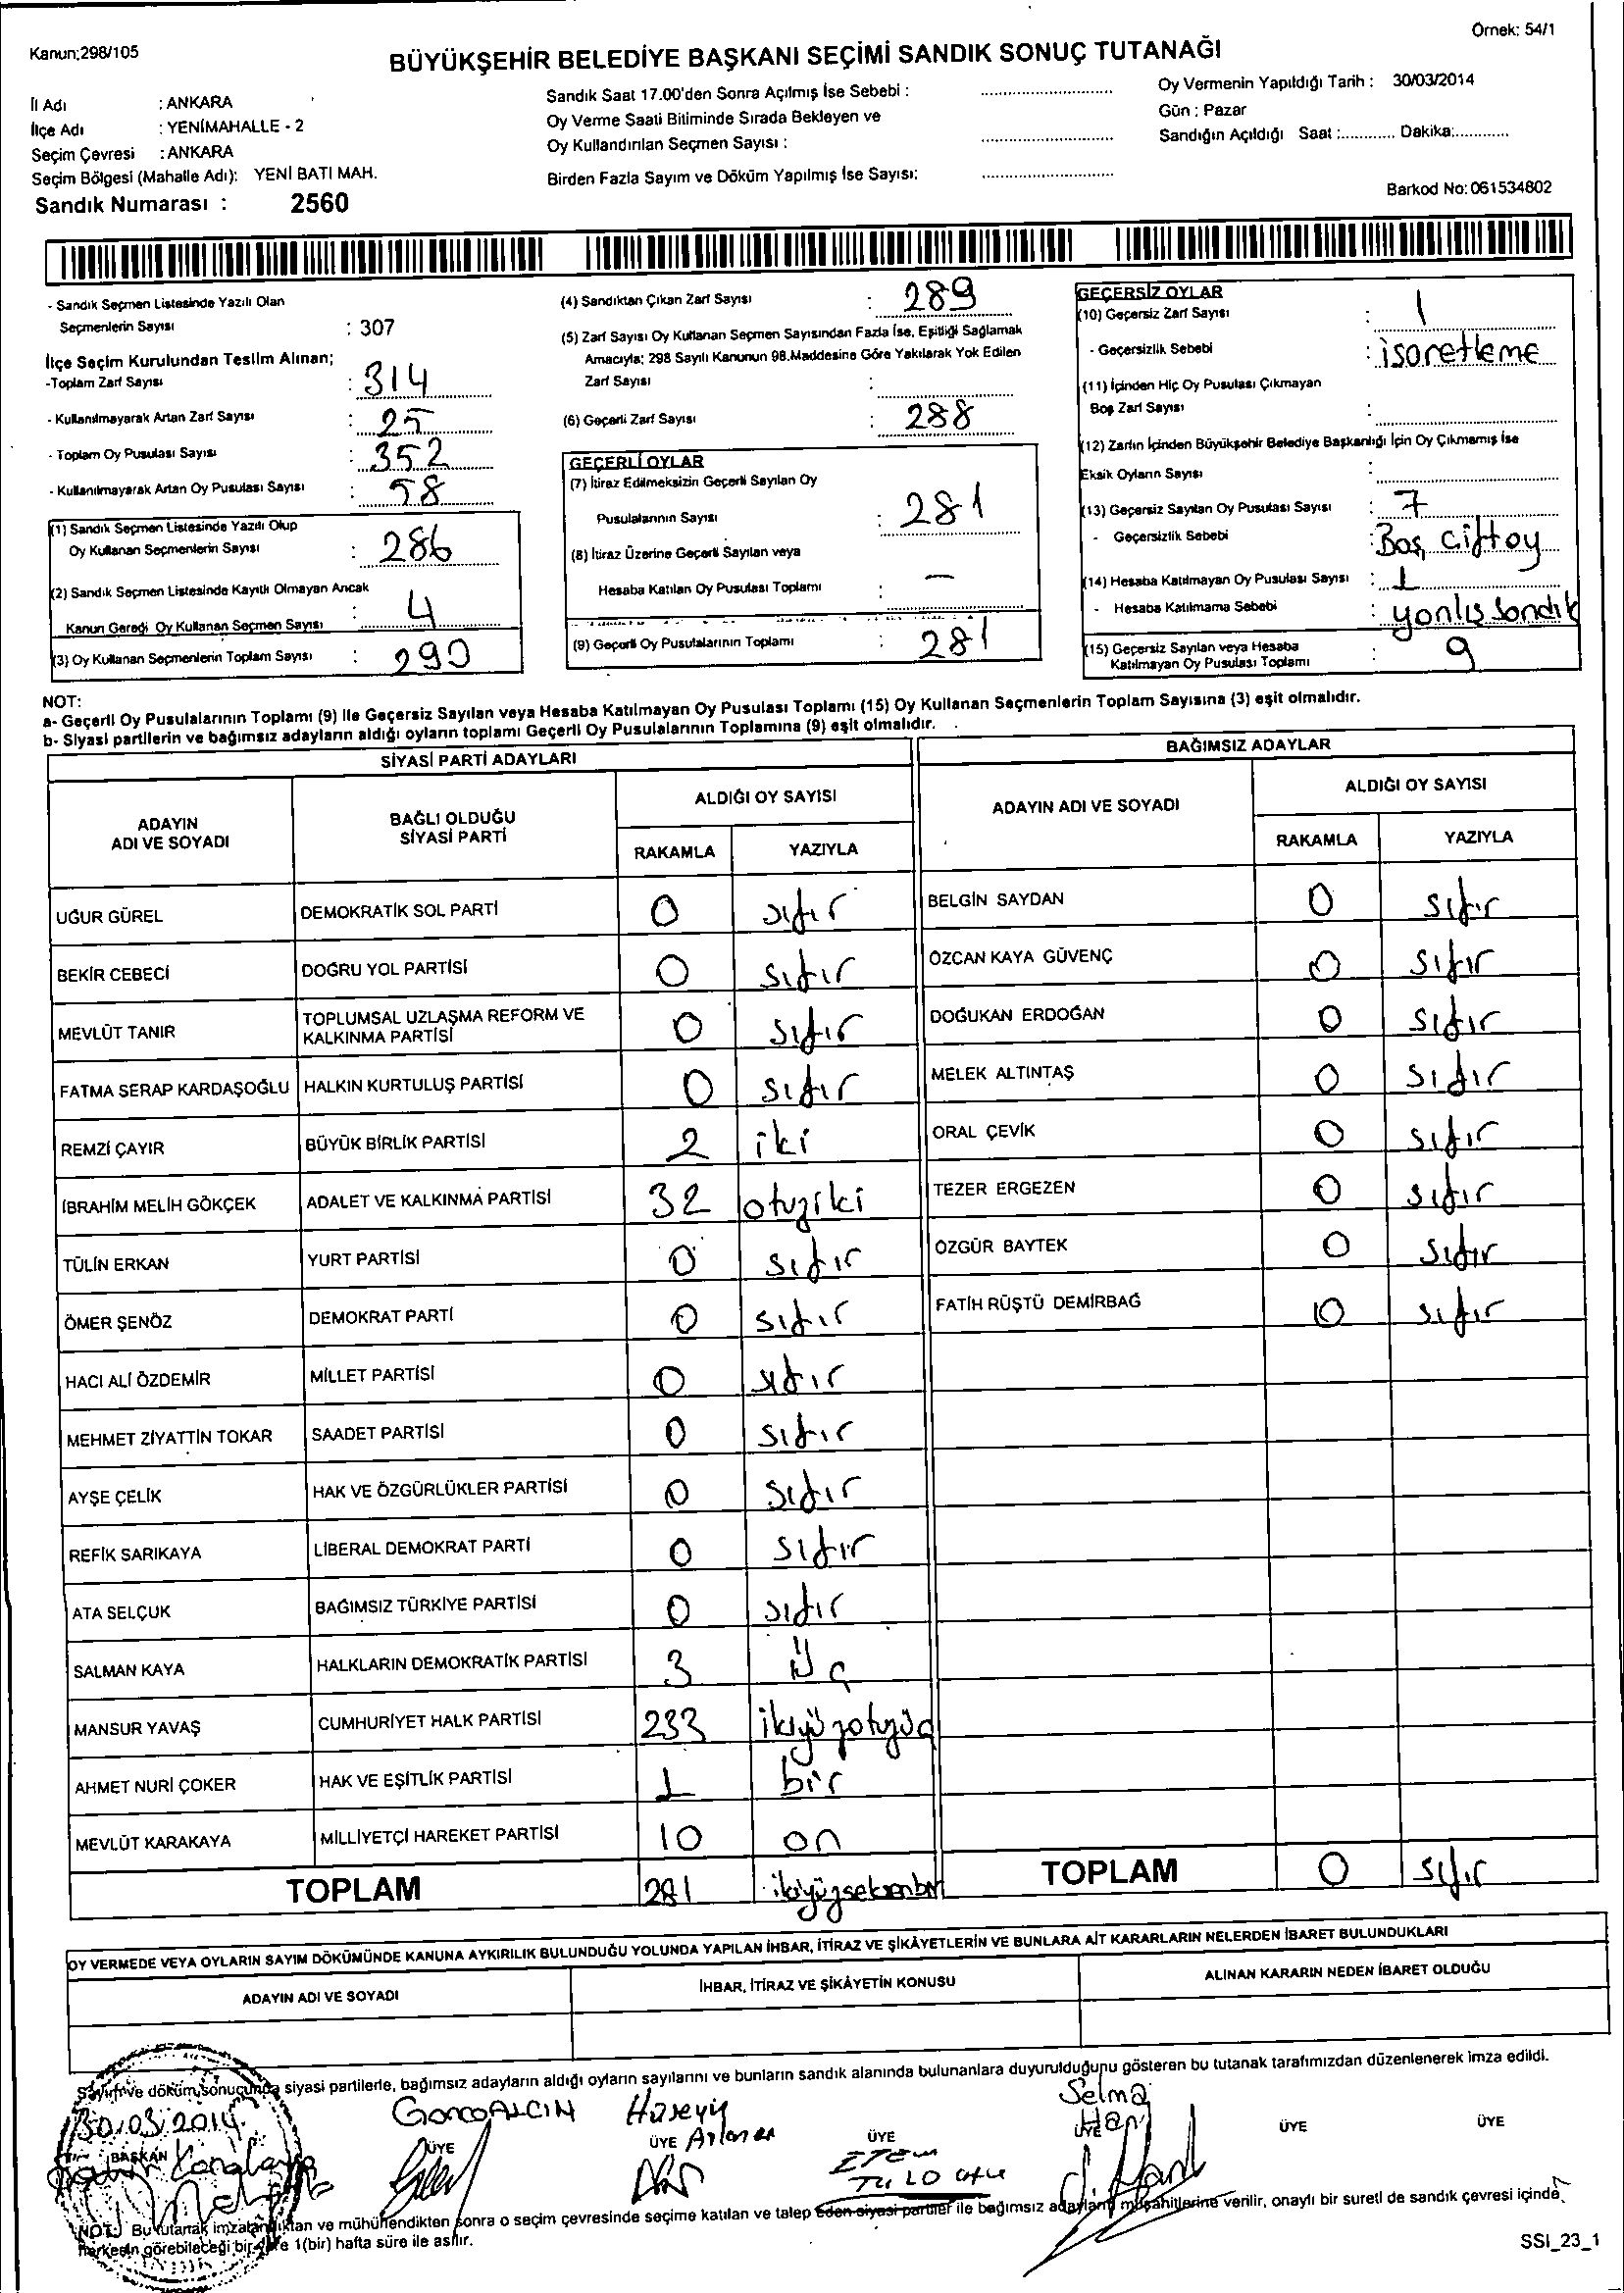 Örnek: 54/1
Kanun:298/105
BÜYÜKŞEHİR BELEDİYE BAŞKANI SEÇİMİ SANDIK SONUÇ TUTANAĞI
İl Adı : ANKARA
İlçe Adı : YENİMAHALLE - 2
Seçim Çevresi : ANKARA
Seçim Bölgesi (Mahalle Adı): YENİ BATI MAH.
Sandık Numarası : 2560
Sandık Saat 17.00'den Sonra Açılmış İse Sebebi :
Oy Verme Saati Bitiminde Sırada Bekleyen ve
Oy Kullandırılan Seçmen Sayısı :
Birden Fazla Sayım ve Döküm Yapılmış İse Sayısı:
Oy Vermenin Yapıldığı Tarih : 30/03/2014
Gün : Pazar
Sandığın Açıldığı Saat :............ Dakika:............
Barkod No: 061534802
- Sandık Seçmen Listesinde Yazılı Olan
Seçmenlerin Sayısı : 307
İlçe Seçim Kurulundan Teslim Alınan;
-Toplam Zarf Sayısı : 314
- Kullanılmayarak Artan Zarf Sayısı : 25
- Toplam Oy Pusulası Sayısı : 352
- Kullanılmayarak Artan Oy Pusulası Sayısı : 58
(1) Sandık Seçmen Listesinde Yazılı Olup
Oy Kullanan Seçmenlerin Sayısı : 286
(2) Sandık Seçmen Listesinde Kayıtlı Olmayan Ancak
Kanun Gereği Oy Kullanan Seçmen Sayısı : 4
(3) Oy Kullanan Seçmenlerin Toplam Sayısı : 290
(4) Sandıktan Çıkan Zarf Sayısı : 289
(5) Zarf Sayısı Oy Kullanan Seçmen Sayısından Fazla İse, Eşitliği Sağlamak
Amacıyla; 298 Sayılı Kanunun 98.Maddesine Göre Yakılarak Yok Edilen
Zarf Sayısı :
(6) Geçerli Zarf Sayısı : 288
GEÇERLİ OYLAR
(7) İtiraz Edilmeksizin Geçerli Sayılan Oy
Pusulalarının Sayısı : 281
(8) İtiraz Üzerine Geçerli Sayılan veya
Hesaba Katılan Oy Pusulası Toplamı : -
(9) Geçerli Oy Pusulalarının Toplamı : 281
GEÇERSİZ OYLAR
(10) Geçersiz Zarf Sayısı : 1
- Geçersizlik Sebebi : işaretleme
(11) İçinden Hiç Oy Pusulası Çıkmayan
Boş Zarf Sayısı :
(12) Zarfın İçinden Büyükşehir Belediye Başkanlığı İçin Oy Çıkmamış İse
Eksik Oyların Sayısı :
(13) Geçersiz Sayılan Oy Pusulası Sayısı : 7
- Geçersizlik Sebebi : Boş, çift oy
(14) Hesaba Katılmayan Oy Pusulası Sayısı : 1
- Hesaba Katılmama Sebebi : yanlış sandık
(15) Geçersiz Sayılan veya Hesaba
Katılmayan Oy Pusulası Toplamı : 9
NOT:
a- Geçerli Oy Pusulalarının Toplamı (9) ile Geçersiz Sayılan veya Hesaba Katılmayan Oy Pusulası Toplamı (15) Oy Kullanan Seçmenlerin Toplam Sayısına (3) eşit olmalıdır.
b- Siyasi partilerin ve bağımsız adayların aldığı oyların toplamı Geçerli Oy Pusulalarının Toplamına (9) eşit olmalıdır.
SİYASİ PARTİ ADAYLARI
BAĞIMSIZ ADAYLAR
ADAYIN ADI VE SOYADI
BAĞLI OLDUĞU SİYASİ PARTİ
ALDIĞI OY SAYISI
RAKAMLA YAZIYLA
ADAYIN ADI VE SOYADI
ALDIĞI OY SAYISI
RAKAMLA YAZIYLA
UĞUR GÜREL DEMOKRATİK SOL PARTİ 0 sıfır BELGİN SAYDAN 0 sıfır
BEKİR CEBECİ DOĞRU YOL PARTİSİ 0 sıfır ÖZCAN KAYA GÜVENÇ 0 sıfır
MEVLÜT TANIR TOPLUMSAL UZLAŞMA REFORM VE KALKINMA PARTİSİ 0 sıfır DOĞUKAN ERDOĞAN 0 sıfır
FATMA SERAP KARDAŞOĞLU HALKIN KURTULUŞ PARTİSİ 0 sıfır MELEK ALTINTAŞ 0 sıfır
REMZİ ÇAYIR BÜYÜK BİRLİK PARTİSİ 2 iki ORAL ÇEVİK 0 sıfır
İBRAHİM MELİH GÖKÇEK ADALET VE KALKINMA PARTİSİ 32 otuziki TEZER ERGEZEN 0 sıfır
TÜLİN ERKAN YURT PARTİSİ 0 sıfır ÖZGÜR BAYTEK 0 sıfır
ÖMER ŞENÖZ DEMOKRAT PARTİ 0 sıfır FATİH RÜŞTÜ DEMİRBAĞ 0 sıfır
HACI ALİ ÖZDEMİR MİLLET PARTİSİ 0 sıfır
MEHMET ZİYATTİN TOKAR SAADET PARTİSİ 0 sıfır
AYŞE ÇELİK HAK VE ÖZGÜRLÜKLER PARTİSİ 0 sıfır
REFİK SARIKAYA LİBERAL DEMOKRAT PARTİ 0 sıfır
ATA SELÇUK BAĞIMSIZ TÜRKİYE PARTİSİ 0 sıfır
SALMAN KAYA HALKLARIN DEMOKRATİK PARTİSİ 3 üç
MANSUR YAVAŞ CUMHURİYET HALK PARTİSİ 233 ikiyüzotuzüç
AHMET NURİ ÇOKER HAK VE EŞİTLİK PARTİSİ 1 bir
MEVLÜT KARAKAYA MİLLİYETÇİ HAREKET PARTİSİ 10 on
TOPLAM 281 ikiyüzseksenbir TOPLAM 0 sıfır
OY VERMEDE VEYA OYLARIN SAYIM DÖKÜMÜNDE KANUNA AYKIRILIK BULUNDUĞU YOLUNDA YAPILAN İHBAR, İTİRAZ VE ŞİKÂYETLERİN VE BUNLARA AİT KARARLARIN NELERDEN İBARET BULUNDUKLARI
ADAYIN ADI VE SOYADI
İHBAR, İTİRAZ VE ŞİKÂYETİN KONUSU
ALINAN KARARIN NEDEN İBARET OLDUĞU
Sayım ve döküm sonucunda siyasi partilerle, bağımsız adayların aldığı oyların sayılarını ve bunların sandık alanında bulunanlara duyurulduğunu gösteren bu tutanak tarafımızdan düzenlenerek imza edildi.
30/03/2014
BAŞKAN
Gonca ALÇIN
ÜYE
Hüseyin
ÜYE
ÜYE
ETEM
Selma
ÜYE
ÜYE
ÜYE
NOT: Bu tutanak imzalandıktan ve mühürlendikten sonra o seçim çevresinde seçime katılan ve talep eden siyasi partiler ile bağımsız adayların müşahitlerine verilir, onaylı bir sureti de sandık çevresi içinde,
herkesin görebileceği bir yere 1(bir) hafta süre ile asılır.
SSI_23_1